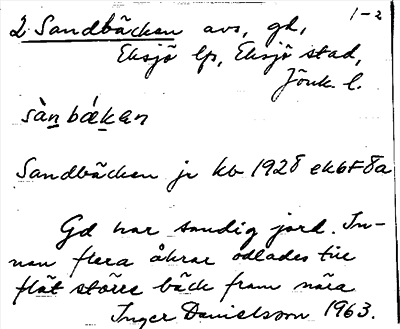 1-2
2. Sandbäcken avs, gd,
Eksjö lp, Eksjö stad,
Jönk. l.
sànbækan
Sandbäcken jr kb 1928 ek6F8a
Gd har sandig jord. In-
nan flera åkrar odlades till
flöt större bäck fram nära
Inger Danielsson 1963.